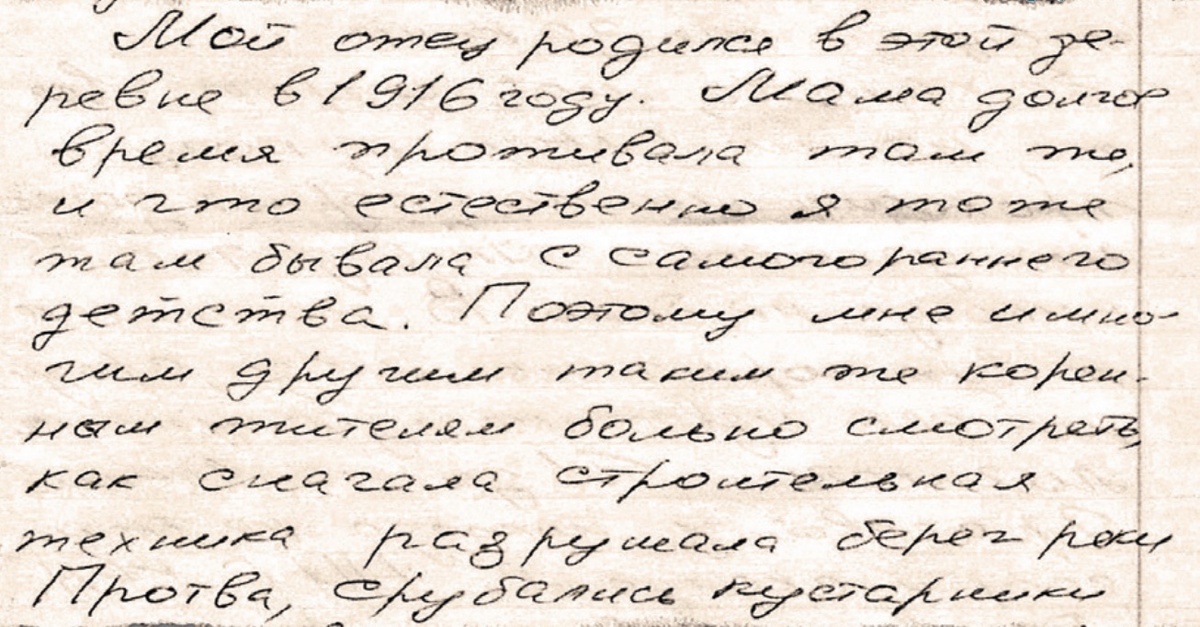 Мой отец родился в этой де-
ревне в 1916 году. Мама долгое
время проживала там же,
и что естественно я тоже
там бывала с самого раннего
детства. Поэтому мне и мно-
гим другим таким же корен-
ным жителям больно смотреть,
как сначала строительная
техника разрушала берег реки
Протва, срубались кустарники